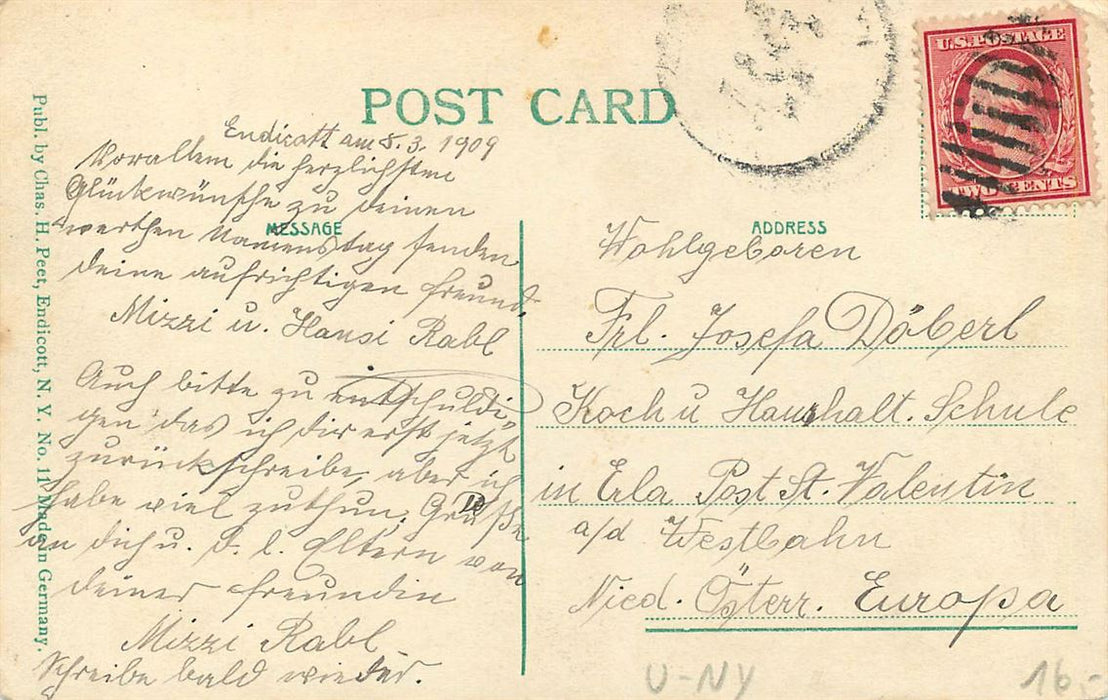 POST CARD
U.S. POSTAGE
TWO CENTS
2
Publ. by Chas. H. Peet, Endicott, N. Y. No. 11 Made in Germany.
Endicott am 8. 3. 1909
Vorallem die herzlichsten
Glückwünsche zu deinen
werthen Namenstag senden
MESSAGE
deine aufrichtigen freund.
Mizzi u. Hansi Rabl
Auch bitte zu entschuldi-
gen das ich dir erst jetzt
zurückschreibe, aber ich
habe viel zuthun. Grüße
an dich u. d. l. Eltern von
deiner freundin
Mizzi Rabl
Schreibe bald wieder.
ADDRESS
Wohlgeboren
Frl. Josefa Döberl
Koch u Haushalt. Schule
in Erla Post St. Valentin
a/d Westbahn
Nied. Österr. Europa
U-NY
16,-